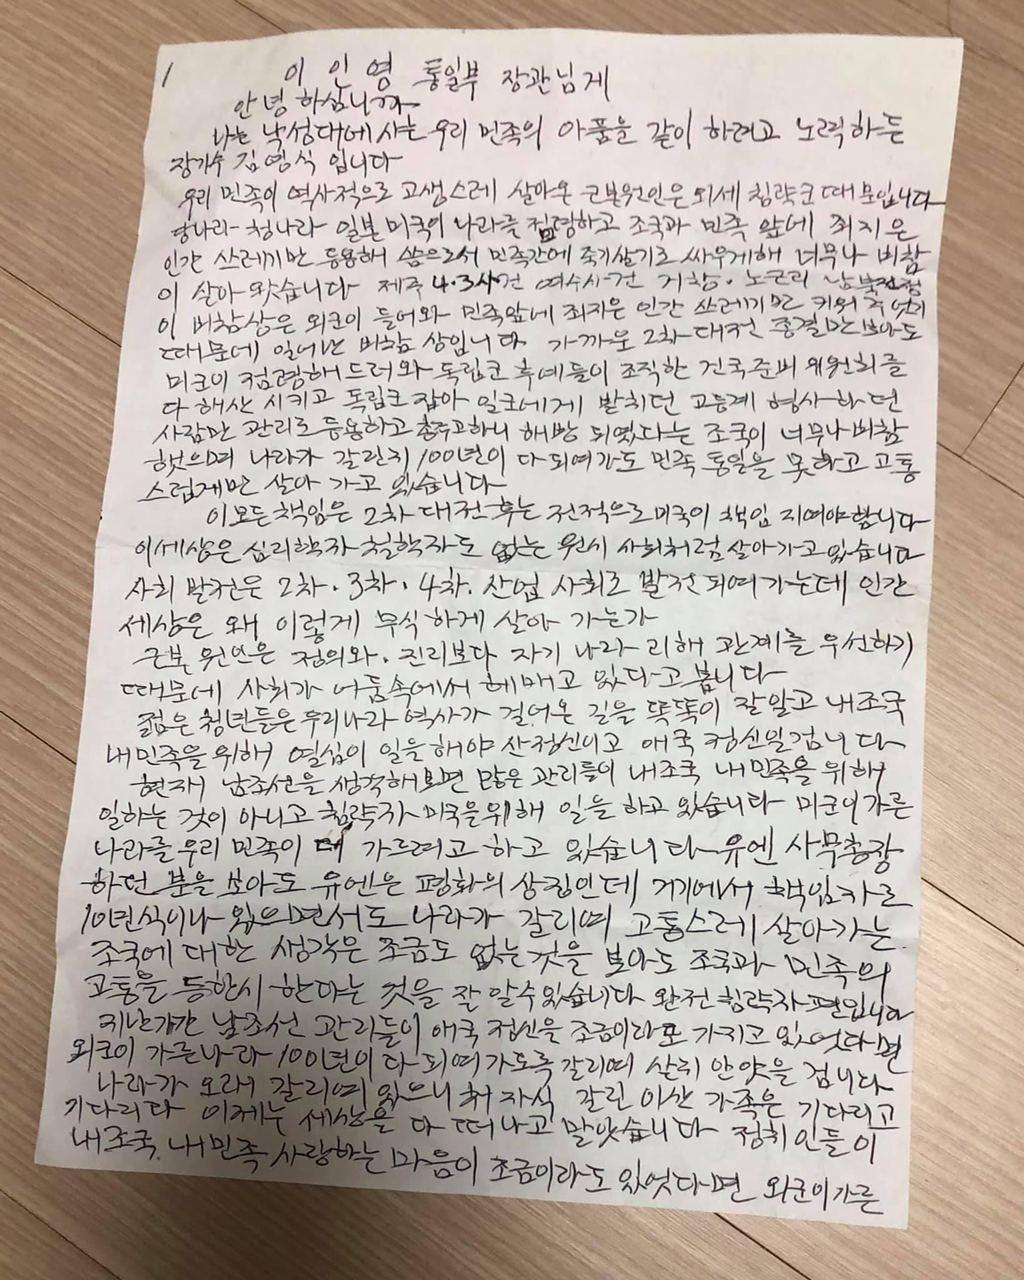 1
이 인 영 통일부 장관님게
안녕하십니까
나는 낙성대에 사는 우리 민족의 아품을 같이 하려고 노력하는
장기수 김영식 입니다
우리 민족이 역사적으로 고생스레 살아온 근본원인은 외세 침략군 때문입니다
당나라 - 청나라 일본 미국이 나라를 점령하고 조국과 민족 앞에 죄지은
인간 쓰레기만 등용해 씀으로서 민족간에 죽기살기로 싸우게해 너무나 비참
이 살아 왓습니다 제주 4.3사건 여수사건 거창. 노근리 남북전쟁
이 비참상은 외군이 들어와 민족앞에 죄지은 인간 쓰레기만 키워 주엇기
때문에 일어난 비참 상입니다 가까운 2차대전 종결만 보아도
미군이 점령해 드러와 독립군 후예들이 조직한 건국준비 위원회를
다 해산 시키고 독립군 잡아 일군에게 받치던 고등계 형사하던
사람만 관리로 등용하고 하니 해방 되엿다는 조국이 너무나 비참
햇으며 나라가 갈린지 100년이 다되여가도 민족 통일을 못하고 고통
스럽게만 살아 가고 있습니다
이모든 책임은 2차 대전 후는 전적으로 미국이 책임 지여야 합니다
이세상은 심리학자 철학자도 없는 원시 사회처럼 살아가고 있습니다
사회 발전은 2차. 3차. 4차. 산업 사회로 발전 되여 가는데 인간
세상은 왜 이렇게 무식하게 살아 가는가
근본 원인은 정의와. 진리보다 자기 나라 리해 관계를 우선하기
때문에 사회가 어둠속에서 헤매고 있다고 봅니다
젊은 청년들은 우리나라 역사가 걸어온 길을 똑똑이 잘알고 내조국
내민족을 위해 열심이 일을 해야 산정신이고 애국 정신일겁니다
현재 남조선을 생각해 보면 많은 관리들이 내조국 내민족을 위해
일하는 것이 아니고 침략자 미국을위해 일을 하고 있습니다 미군이 가른
나라를 우리 민족이 더 가르려고 하고 있습니다 유엔 사무총장
하던 분을 보아도 유엔은 평화의 상징인데 거기에서 책임자로
10년식이나 있으면서도 나라가 갈리여 고통스레 살아가는
조국에 대한 생각은 조금도 없는것을 보아도 조국과 민족의
고통을 등한시 한다는 것을 잘 알수있습니다 완전 침략자 편입니다
지난기간 남조선 관리들이 애국 정신을 조금이라도 가지고 있엇다면
외군이 가른나라 100년이 다 되여 가도록 갈리여 살지 안앗을 겁니다
나라가 오래 갈리여 있으니 처 자식 갈린 이산 가족은 기다리고
기다리다 이제는 세상을 다 떠나고 말앗습니다 정치인들이
내조국. 내민족 사랑하는 마음이 조금이라도 있엇다면 외군이가른